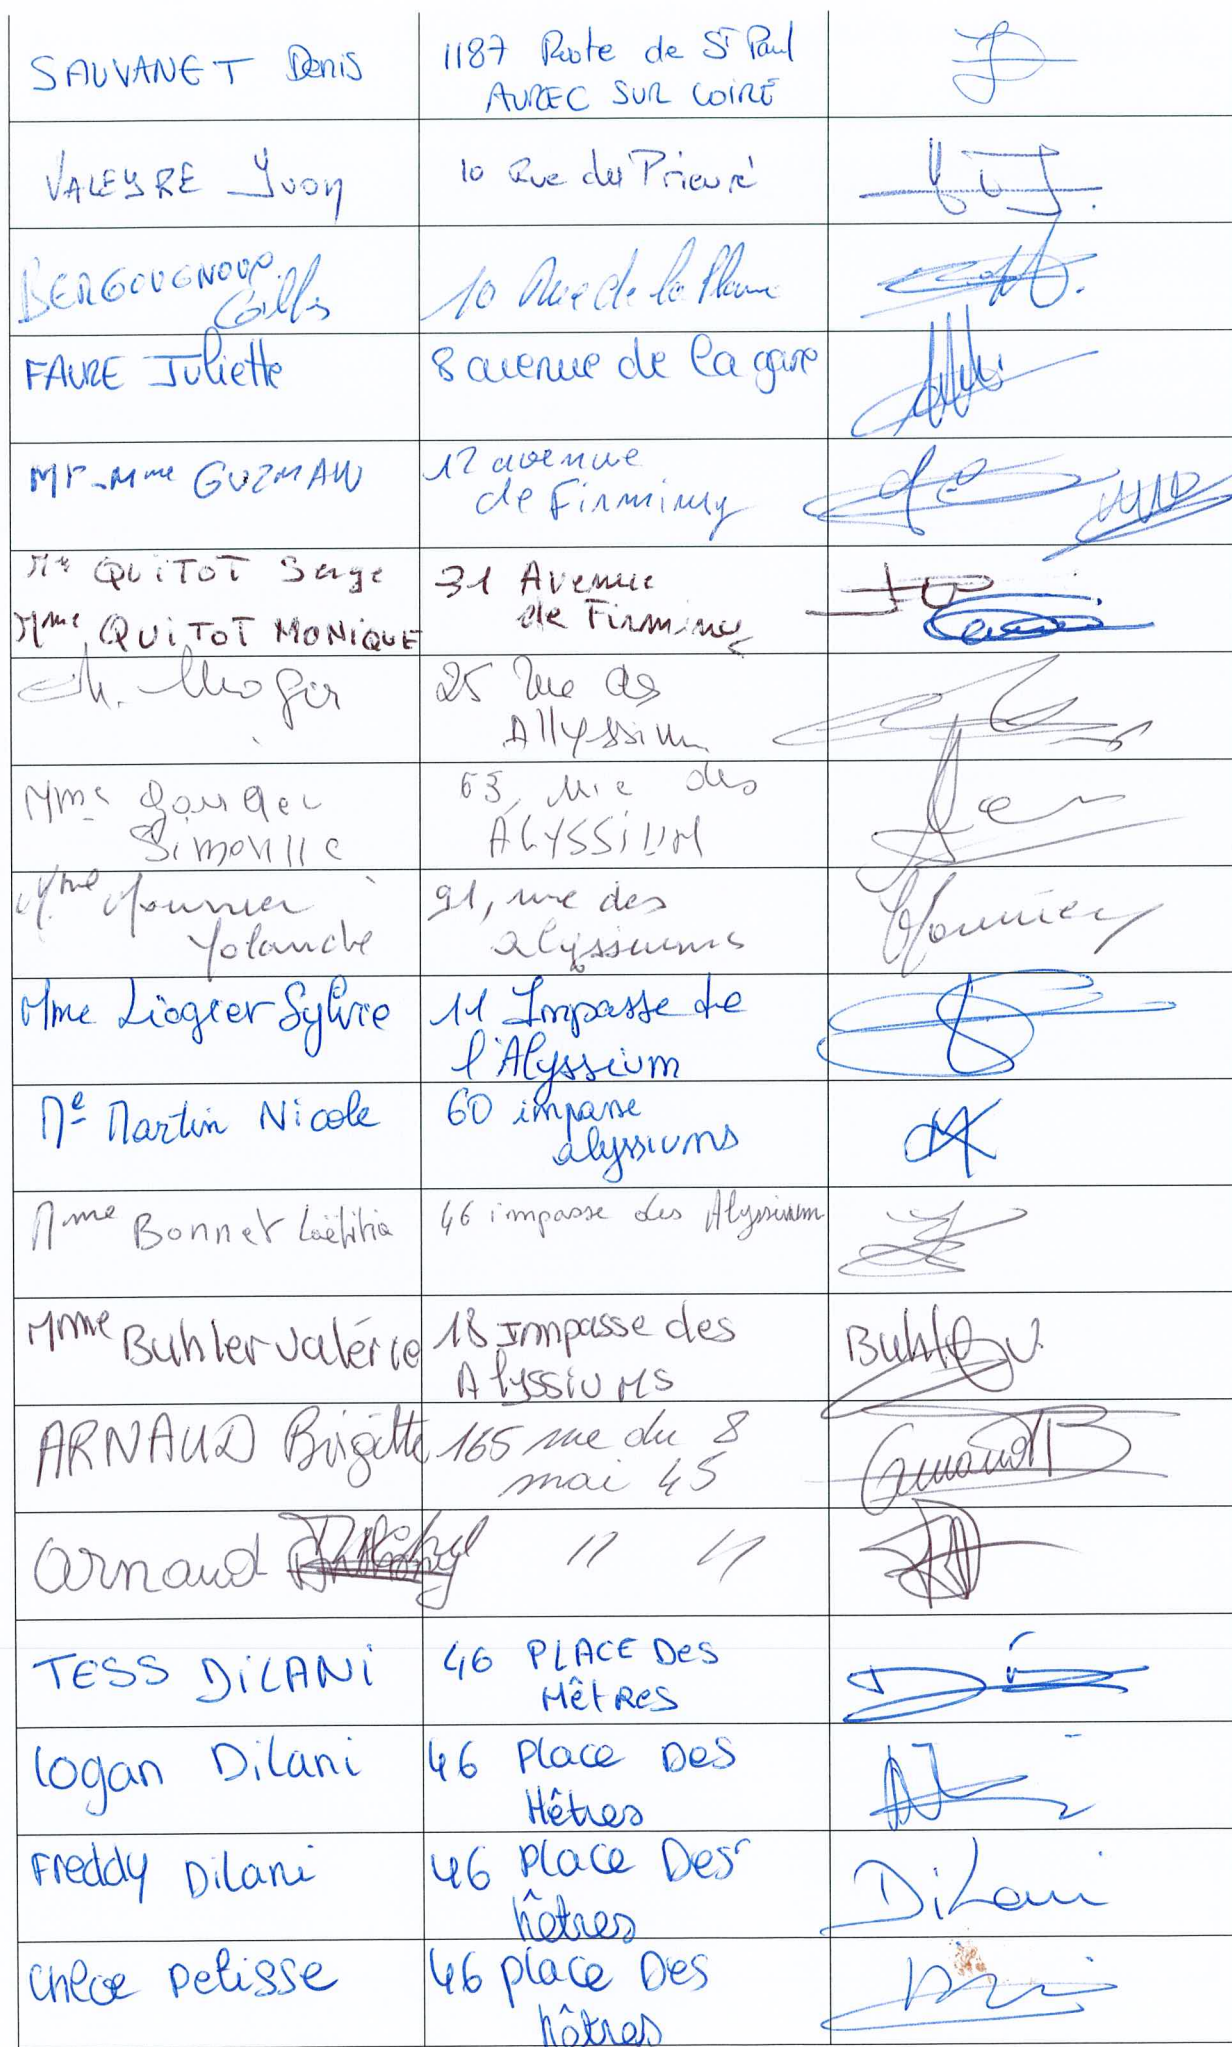 SAUVANET Denis
1187 Route de St Paul
AUREC SUR LOIRE
VALEYRE Yvon
10 Rue du Prieuré
BERGOUGNOUX
Gilles
10 Rue de la Plaine
FAURE Juliette
8 avenue de la gare
Mr-Mme GUZMAN
12 avenue
de Firminy
Mr QUITOT Serge
Mme QUITOT MONIQUE
31 Avenue
de Firminy
25 rue des
Allyssium
Mme
Simonne
63, rue des
ALYSSIUM
Mme Mounier
Yolande
91, rue des
alyssiums
Mme Liogier Sylvie
11 Impasse de
l'Alyssium
Me Martin Nicole
60 impasse
alyssiums
Mme Bonnet Laëtitia
46 impasse des Alyssium
Mme Buhler Valérie
18 Impasse des
Alyssiums
Buhler V.
ARNAUD Brigitte
165 rue du 8
mai 45
Arnaud B
Arnaud
" "
TESS DILANI
46 PLACE Des
Hêtres
Logan Dilani
46 Place Des
Hêtres
Freddy Dilani
46 Place Des
hêtres
Dilani
Chloe Pelisse
46 place Des
hêtres